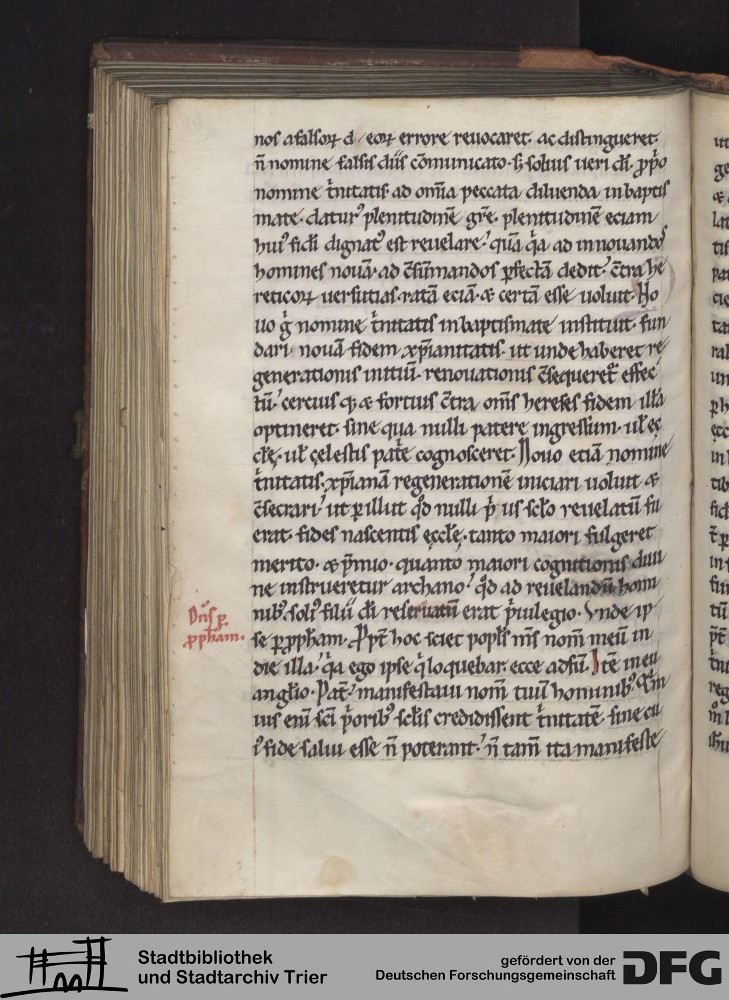 nos a falsoꝝ d eoꝝ errore reuocaret. ac distingueret.
n̄ nomine falsis diis cōmunicato. s; solius ueri dī. ꝓpͥo
nomine tͥnitatis. ad om̄ia peccata diluenda in baptis
mate. datur plenitudinē grē. plenitudinē eciam
huiꝰ fidī dignatꝰ est reuelare. quā qͥa ad innouandos
homines nouā. ad ꝯsūmandos ꝑfectā dedit. ꝯtra he
reticoꝝ uersutias. ratā eciā. & certā esse uoluit. No
uo gͥ nomine tͥnitatis in baptismate instituit. fun
dari nouā fidem xp̄ianitatis. ut unde haberet re
generationis initiū. renouationis ꝯsequeret᷑ effec
tū. cercius qꝫ & fortius ꝯtra om̄s hereses fidem illā
optineret. sine qua nulli patere ingressum. ul̄ ęc
clę. ul̄ cęlestis pat͛e cognosceret. Nouo etiā nomine
tͥnitatis. xp̄ianā regenerationē iniciari uoluit &
ꝯsecrari. ut ꝑ illut qd̄ nulli pͥus sclo reuelatū fu
erat. fides nascentis ęcclę. tanto maiori fulgeret
merito. & p̄mio. quanto maiori cognitionis diui
ne instrueretur archano. qd̄ ad reuelandū homi
nibꝰ. soliꝰ filii dī reseruatū erat pͥuilegio. Vnde ip
se ꝑ ꝓpham. Ppt̄ hoc sciet popls ms̄ nom̄ meū in
die illa. qͥa ego ipse qͥ loquebar. ecce adsū. Itē in eu
anglio. Pat͛. manifestaui nom̄ tuū hominibꝰ. Qm̄
uis eni sci pͥoribꝰ sclis credidissent tͥnitatē. sine cu
iꝰ fide salui esse n̄ poterant. n̄ tam̄ ita manifeste
Dn̄s ꝑ
ꝓpham.
Stadtbibliothek
und Stadtarchiv Trier
gefördert von der
Deutschen Forschungsgemeinschaft
DFG